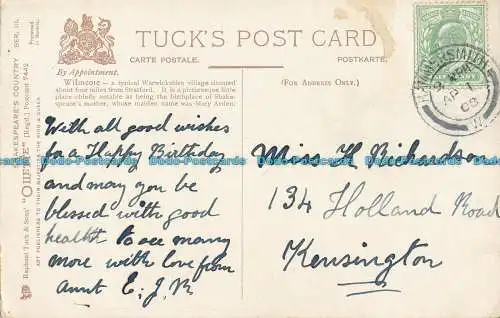 TUCK'S POST CARD
CARTE POSTALE.
POSTKARTE.
By Appointment.
(FOR ADDRESS ONLY.)
Wilmcote — a typical Warwickshire village situated
about four miles from Stratford. It is a picturesque little
place chiefly notable as being the birthplace of Shake-
speare's mother, whose maiden name was Mary Arden.
SHAKESPEARE'S COUNTRY SER. III.
Raphael Tuck & Sons' "OILETTE" [Regd.] Postcard
ART PUBLISHERS TO THEIR MAJESTIES THE KING & QUEEN
HAMMERSMITH
AP 1
W
With all good wishes
for a Happy Birthday
and may you be
blessed with good
health to see many
more with love from
Aunt E. J. R
Miss H Richardson
134 Holland Road
Kensington